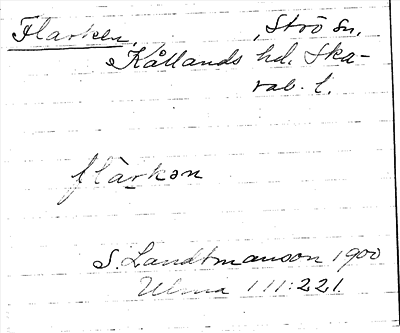 Flarken, Strö sn.
Kållands hd. Ska-
rab. l.
flarkən
S. Landtmanson 1900
Ulma 111:221.